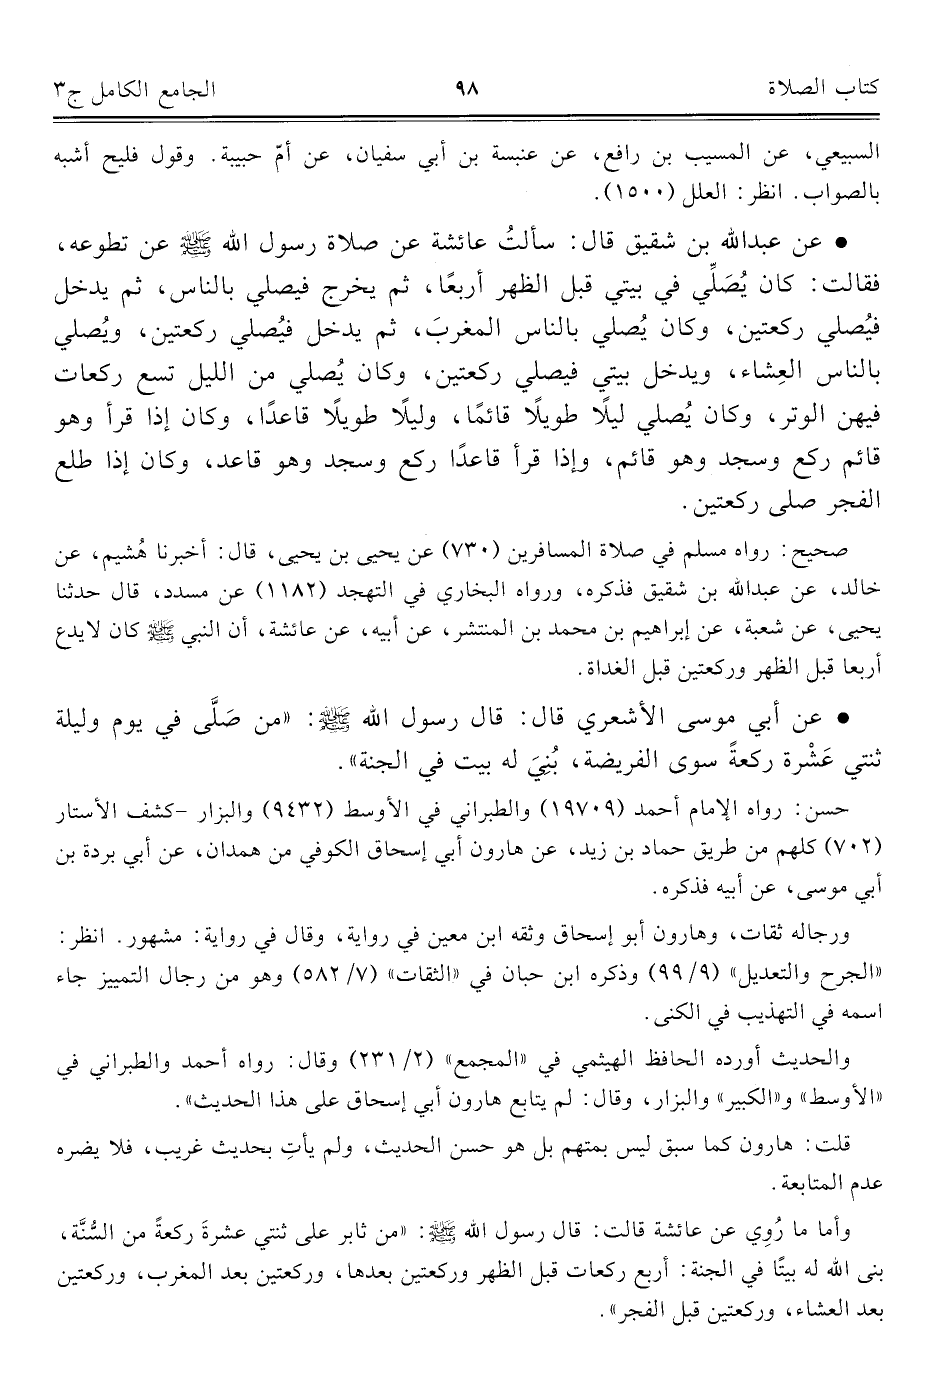 كتاب الصلاة ٩٨ الجامع الكامل ج٣
السبيعي، عن المسيب بن رافع، عن عنبسة بن أبي سفيان، عن أمّ حبيبة. وقول فليح أشبه
بالصواب. انظر: العلل (١٥٠٠).
• عن عبدالله بن شقيق قال: سألتُ عائشة عن صلاة رسول الله ﷺ عن تطوعه،
فقالت: كان يُصَلِّي في بيتي قبل الظهر أربعًا، ثم يخرج فيصلي بالناس، ثم يدخل
فيُصلي ركعتين، وكان يُصلي بالناس المغربَ، ثم يدخل فيُصلي ركعتين، ويُصلي
بالناس العِشاء، ويدخل بيتي فيصلي ركعتين، وكان يُصلي من الليل تسع ركعات
فيهن الوتر، وكان يُصلي ليلًا طويلًا قائمًا، وليلًا طويلًا قاعدًا، وكان إذا قرأ وهو
قائم ركع وسجد وهو قائم، وإذا قرأ قاعدًا ركع وسجد وهو قاعد، وكان إذا طلع
الفجر صلى ركعتين.
صحيح: رواه مسلم في صلاة المسافرين (٧٣٠) عن يحيى بن يحيى، قال: أخبرنا هُشيم، عن
خالد، عن عبدالله بن شقيق فذكره، ورواه البخاري في التهجد (١١٨٢) عن مسدد، قال حدثنا
يحيى، عن شعبة، عن إبراهيم بن محمد بن المنتشر، عن أبيه، عن عائشة، أن النبي ﷺ كان لايدع
أربعا قبل الظهر وركعتين قبل الغداة.
• عن أبي موسى الأشعري قال: قال رسول الله ﷺ: «من صَلَّى في يوم وليلة
ثنتي عَشْرة ركعةً سوى الفريضة، بُنِيَ له بيت في الجنة».
حسن: رواه الإمام أحمد (١٩٧٠٩) والطبراني في الأوسط (٩٤٣٢) والبزار -كشف الأستار
(٧٠٢) كلهم من طريق حماد بن زيد، عن هارون أبي إسحاق الكوفي من همدان، عن أبي بردة بن
أبي موسى، عن أبيه فذكره.
ورجاله ثقات، وهارون أبو إسحاق وثقه ابن معين في رواية، وقال في رواية: مشهور. انظر:
«الجرح والتعديل» (٩/ ٩٩) وذكره ابن حبان في «الثقات» (٧/ ٥٨٢) وهو من رجال التمييز جاء
اسمه في التهذيب في الكنى.
والحديث أورده الحافظ الهيثمي في «المجمع» (٢/ ٢٣١) وقال: رواه أحمد والطبراني في
«الأوسط» و«الكبير» والبزار، وقال: لم يتابع هارون أبي إسحاق على هذا الحديث».
قلت: هارون كما سبق ليس بمتهم بل هو حسن الحديث، ولم يأتِ بحديث غريب، فلا يضره
عدم المتابعة.
وأما ما رُوِي عن عائشة قالت: قال رسول الله ﷺ: «من ثابر على ثنتي عشرةَ ركعةً من السُّنَّة،
بنى الله له بيتًا في الجنة: أربع ركعات قبل الظهر وركعتين بعدها، وركعتين بعد المغرب، وركعتين
بعد العشاء، وركعتين قبل الفجر».